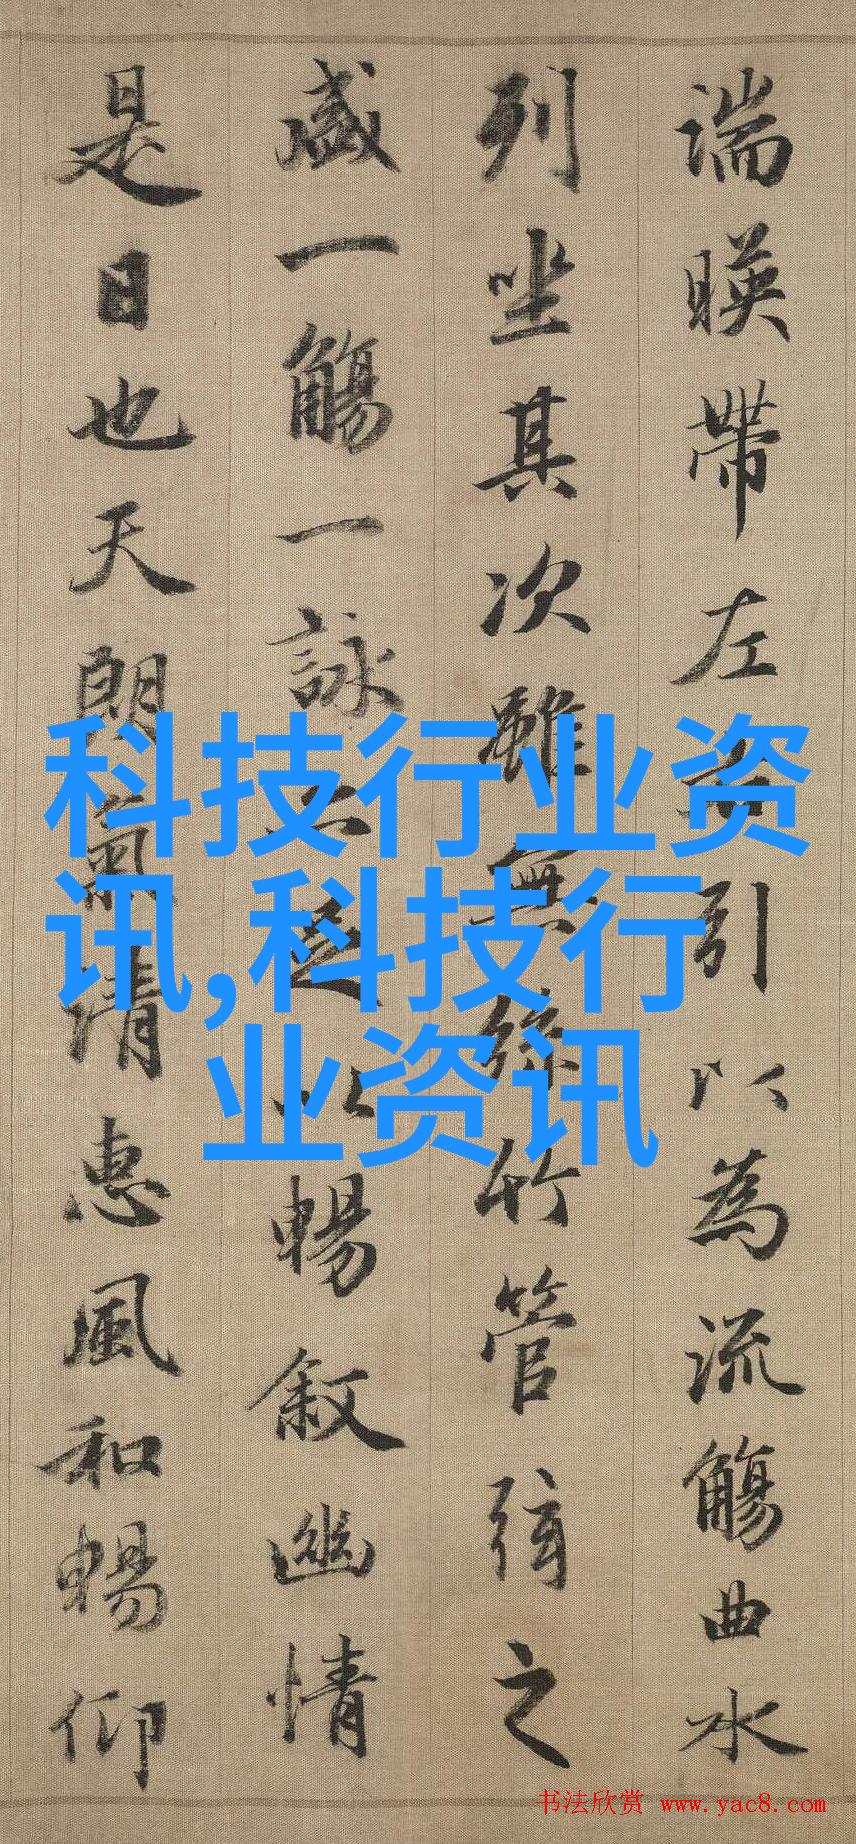 湍暎帶左右引以為流觴曲水
列坐其次雖無絲竹管弦之
盛一觴一詠亦足以暢叙幽情
是日也天朗氣清惠風和暢仰
科技行业资
讯,科技行
业资讯
书法欣赏 www.yac8.com